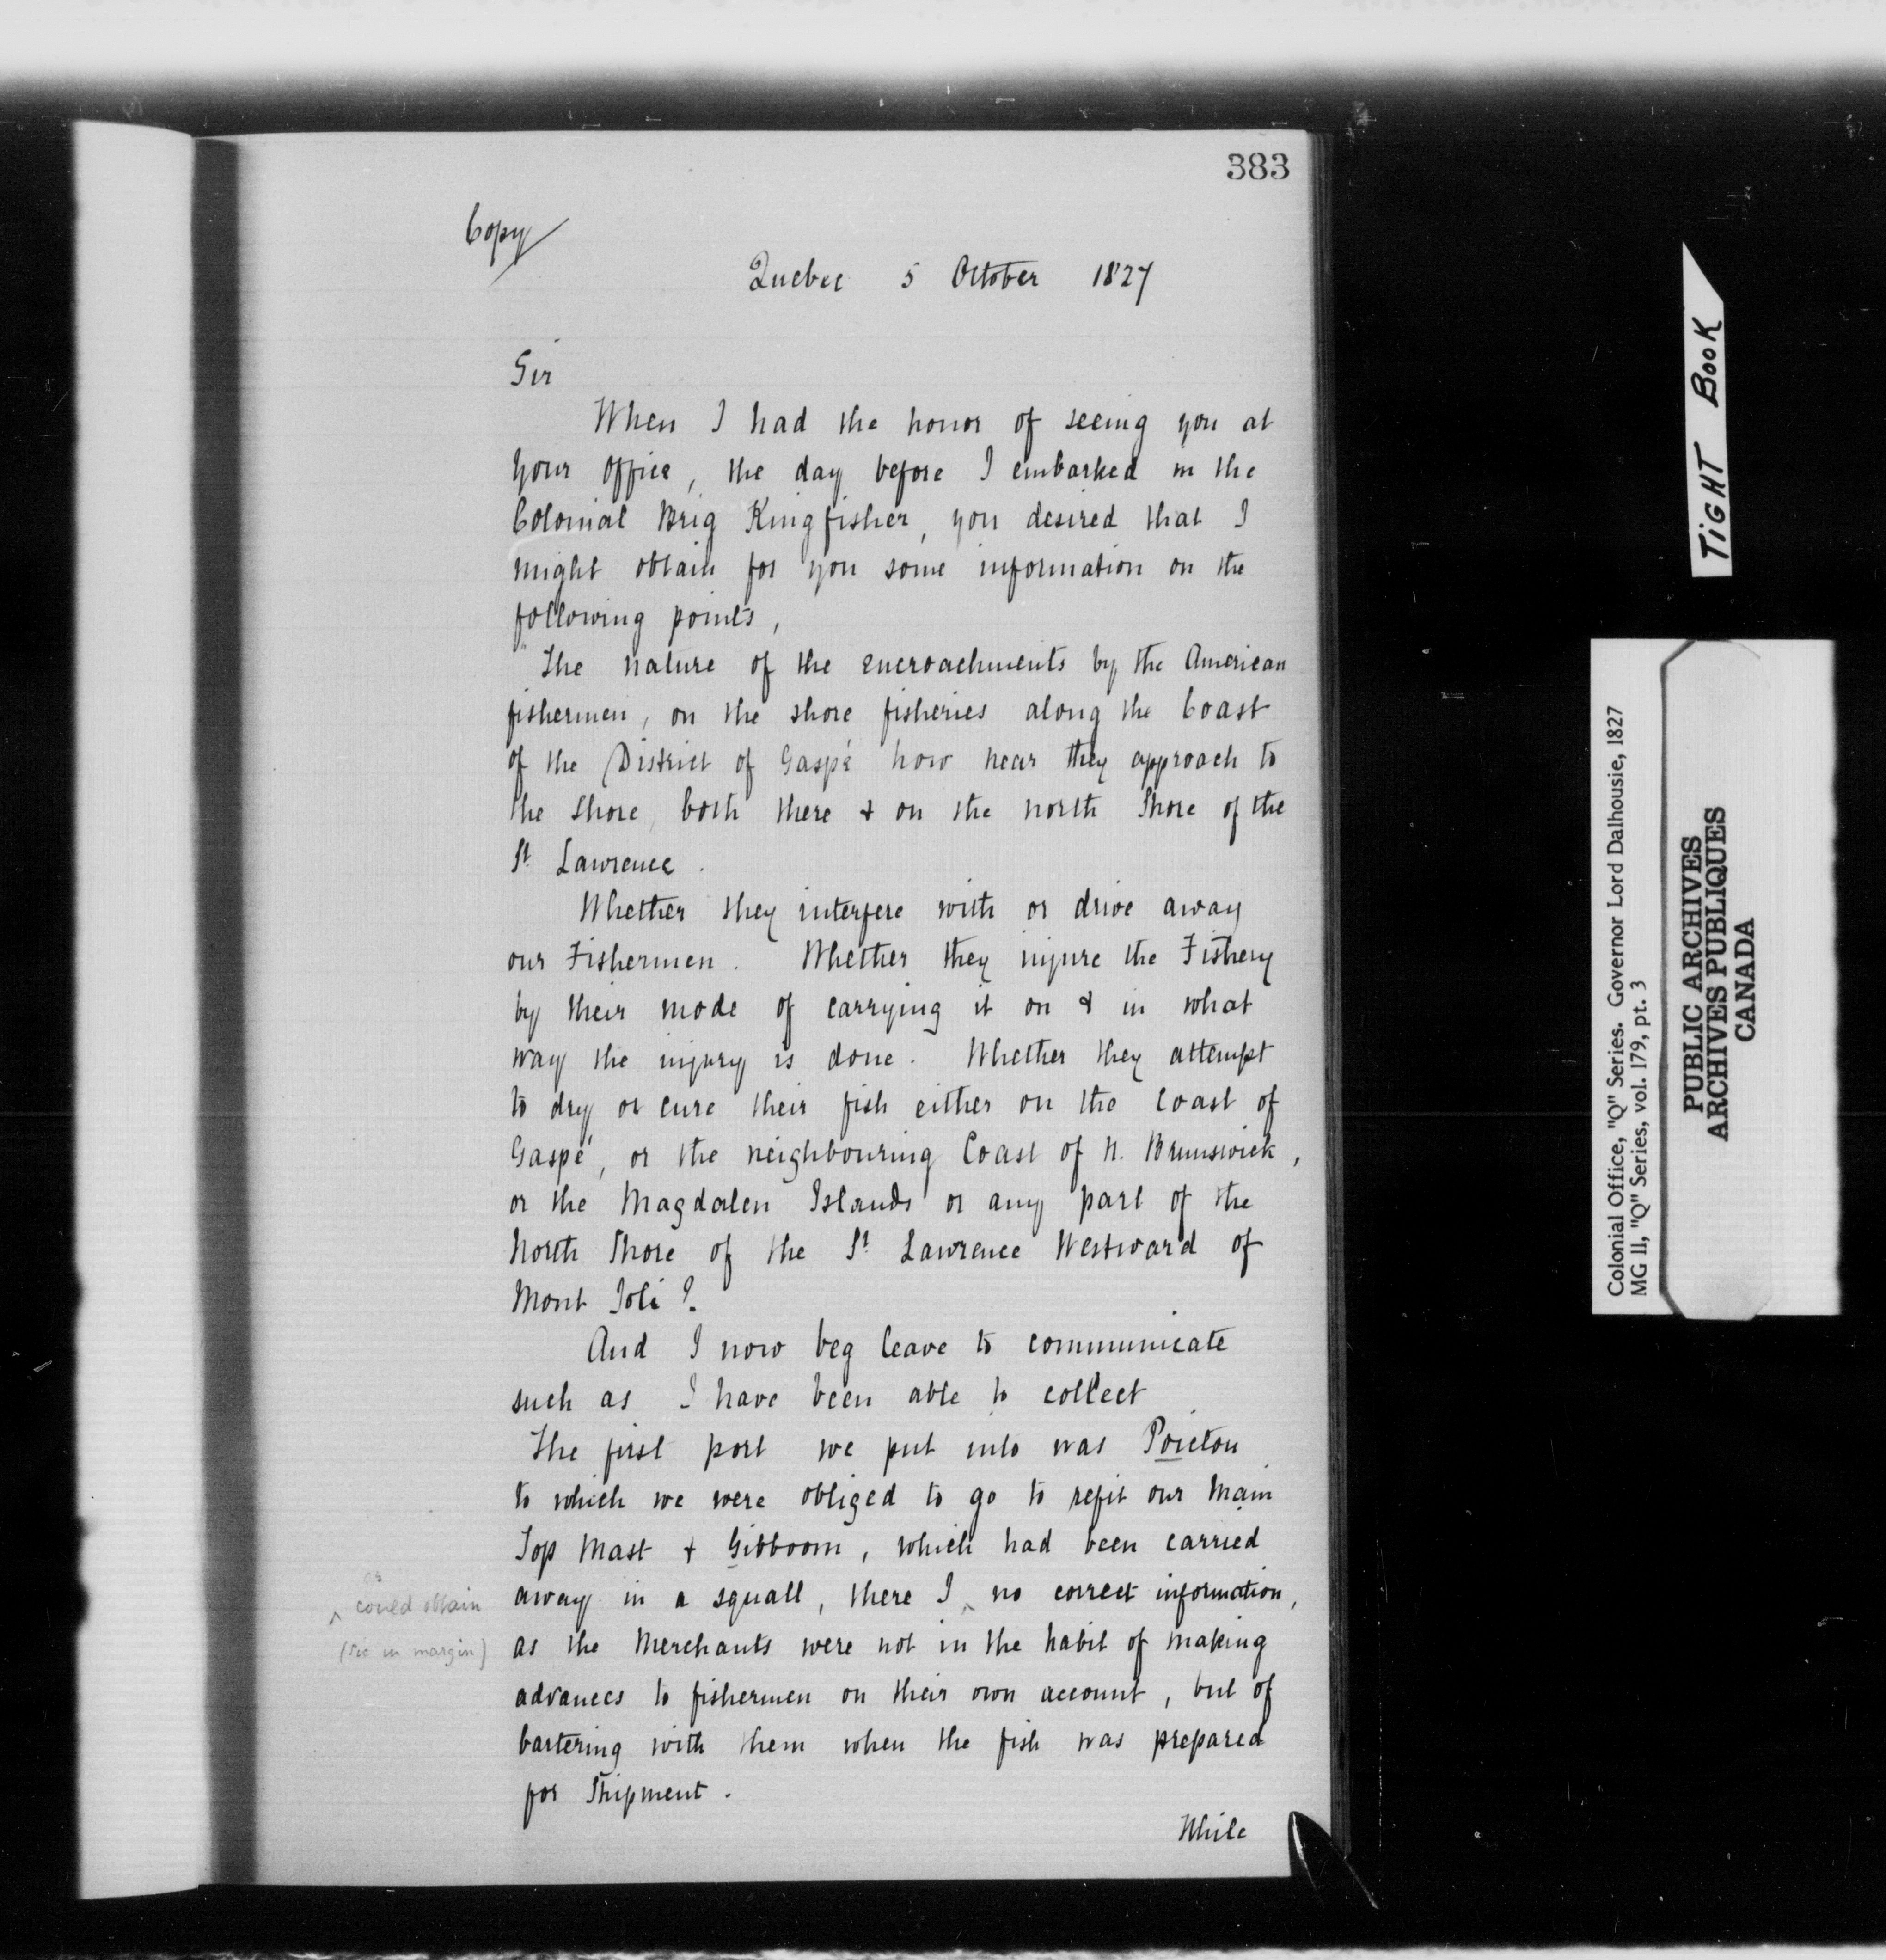 383
Copy
Quebec 5 October 1827
Sir
When I had the honor of seeing you at
your office, the day before I embarked in the
Colonial Brig Kingfisher, you desired that I
might obtain for you some information on the
following points,
"The nature of the encroachments by the American
fishermen, on the shore fisheries along the Coast
of the District of Gaspé how near they approach to
the shore, both there & on the north Shore of the
St. Lawrence.
Whether they interfere with or drive away
our Fishermen. Whether they injure the Fishery
by their mode of carrying it on & in what
way the injury is done. Whether they attempt
to dry or cure their fish either on the Coast of
Gaspé, or the neighbouring Coast of N. Brunswick,
or the Magdalen Islands or any part of the
North Shore of the St. Lawrence Westward of
Mont Joli?.
And I now beg leave to communicate
such as I have been able to collect
The first port we put into was Poicton
to which we were obliged to go to refit our Main
Top Mast & Gibboom, which had been carried
away in a squall, there I ^ no correct information,
^ could obtain
(sic in margin)
as the Merchants were not in the habit of making
advances to fishermen on their own account, but of
bartering with them when the fish was prepared
for Shipment.
While
TIGHT BOOK
Colonial Office, "Q" Series. Governor Lord Dalhousie, 1827
MG 11, "Q" Series, vol. 179, pt. 3
PUBLIC ARCHIVES
ARCHIVES PUBLIQUES
CANADA